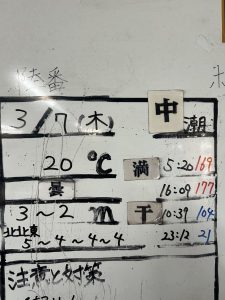 陸番
3/7(木) 中潮
20℃ 満 5:20 169
曇 16:09 177
3~2m 干 10:39 104
北北東 5~4~4~4 23:12 21
注意と対策